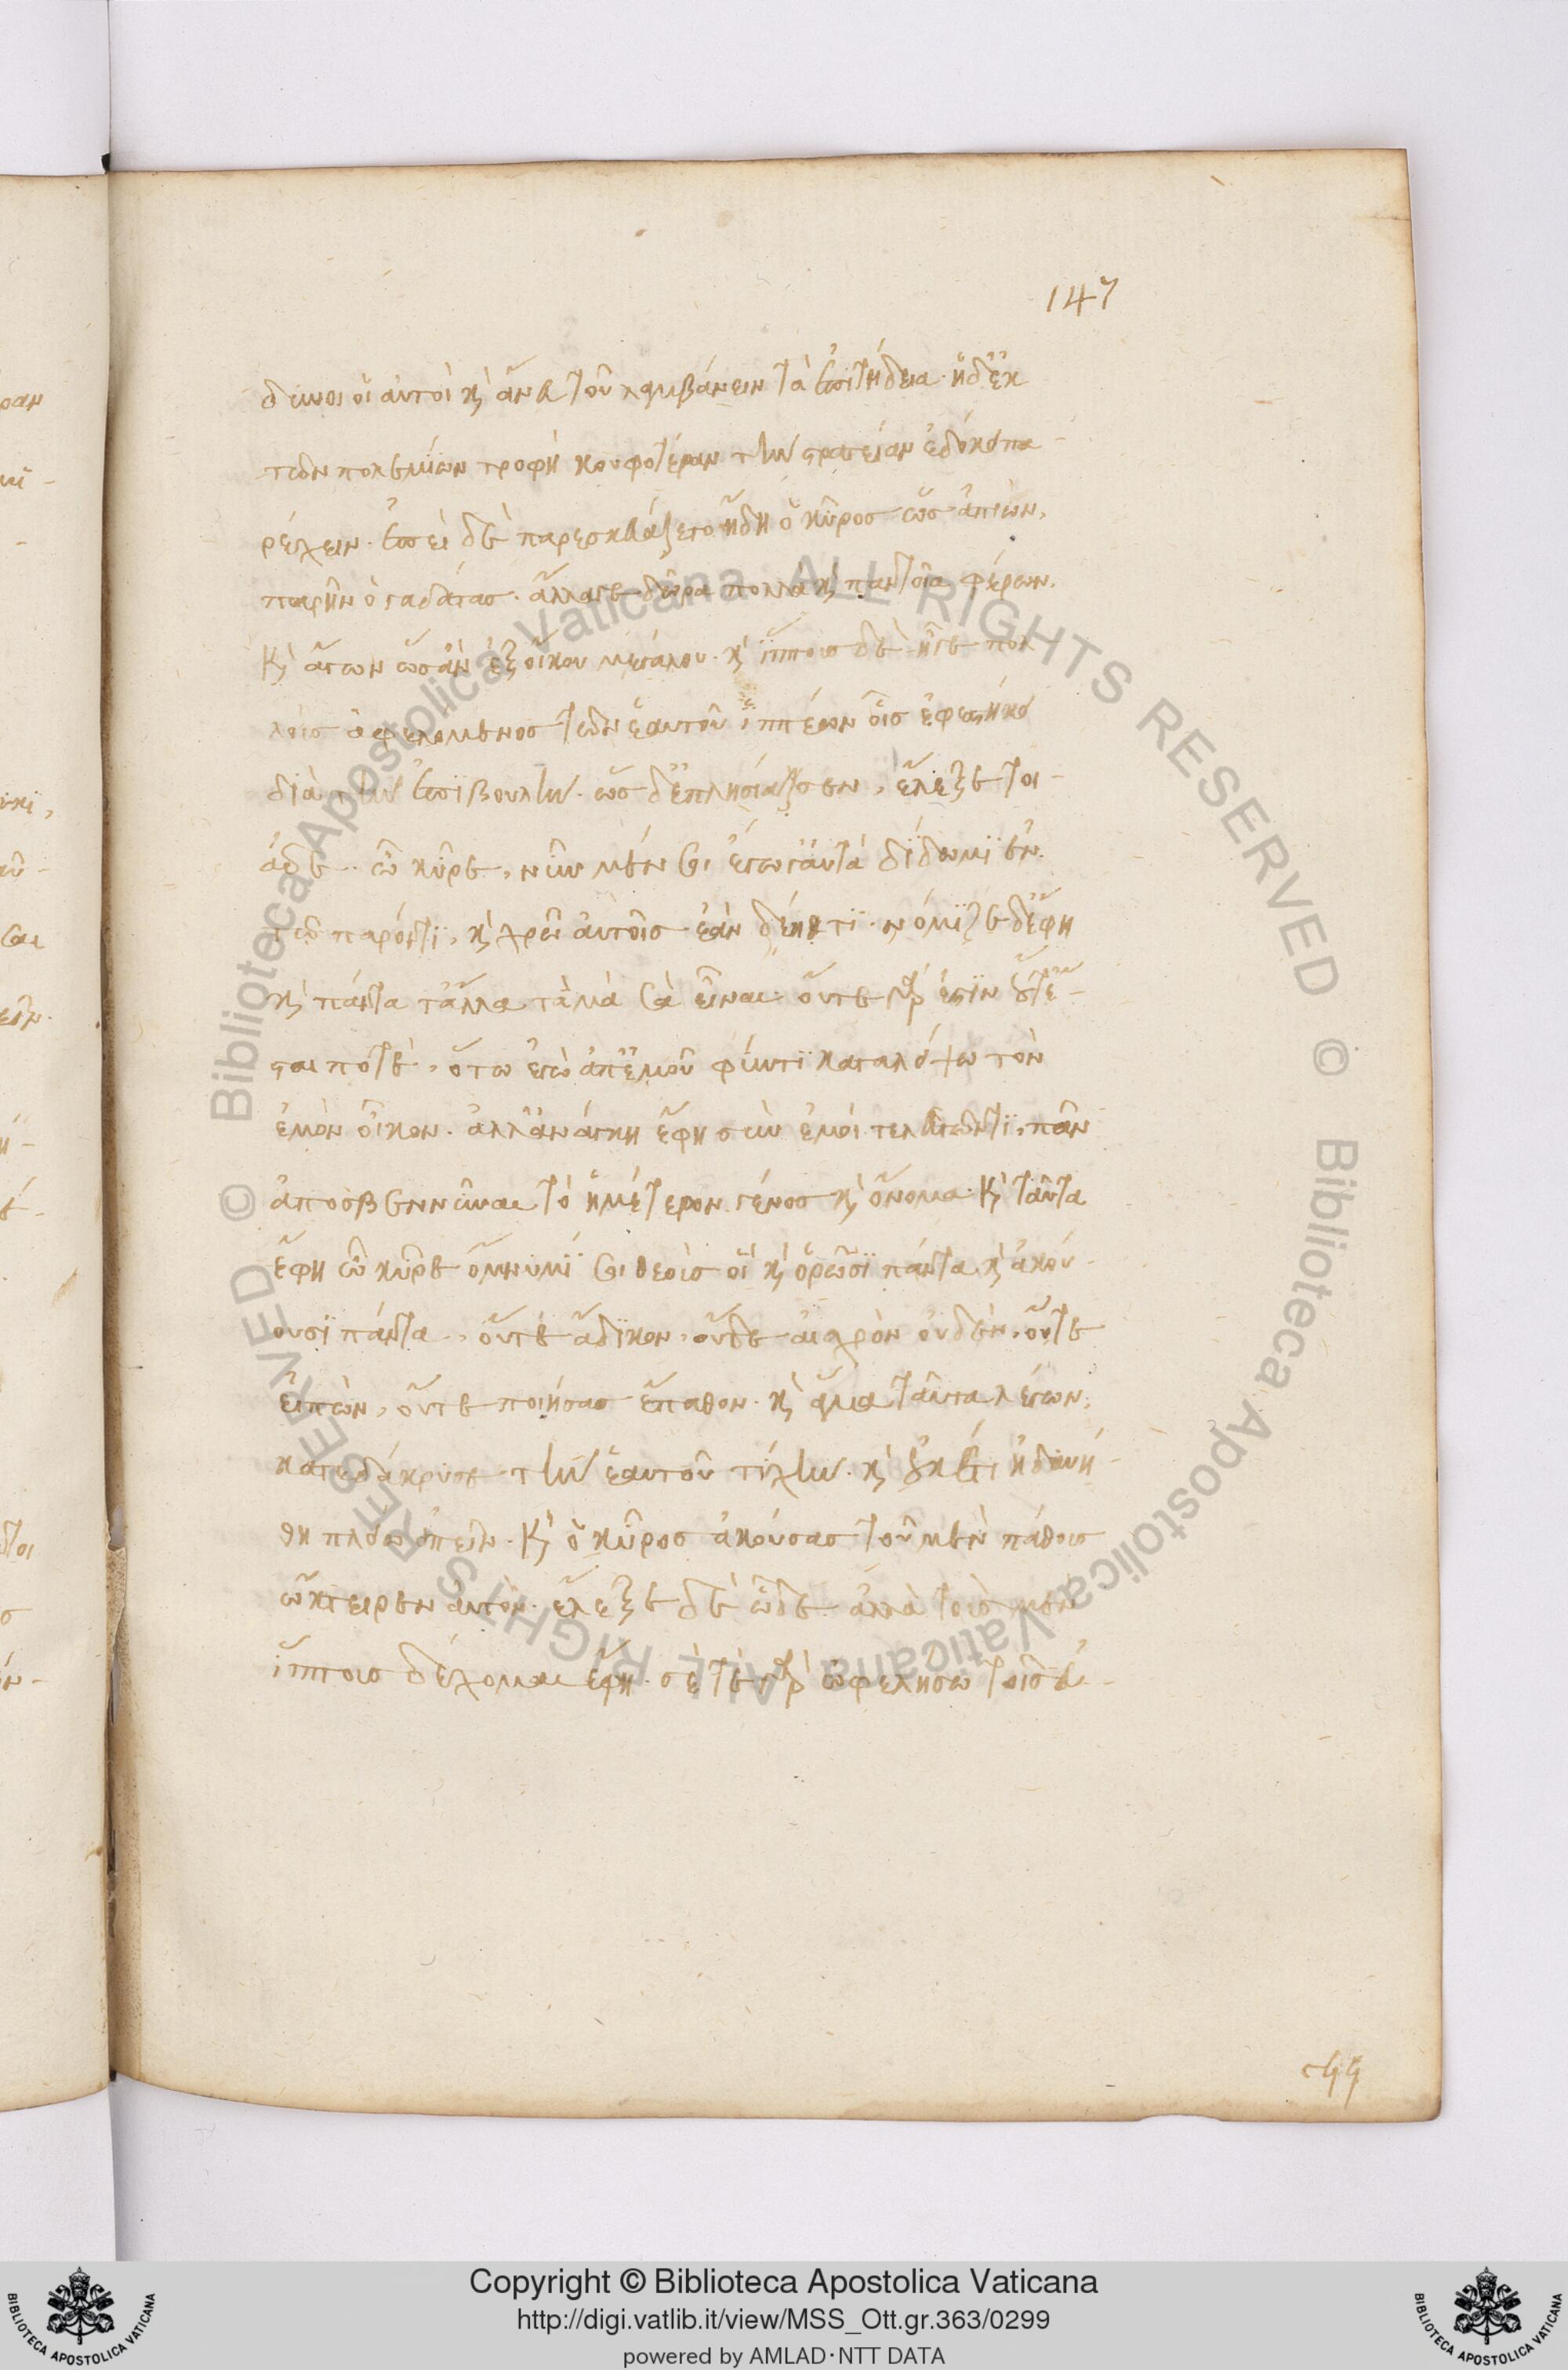 147
δυνοι οἱ αὐτοὶ κὶ ἄνευ τοῦ λαμβάνειν τὰ ἐπιτήδεια· ἡ δ' ἐκ
τῶν πολεμίων τροφὴ κουφοτέραν τὴν στρατείαν ἐδόκει πα-
ρέχειν. ἐπεὶ δὲ παρεσκευάζετο ἤδη ὁ κῦρος ὡς ἀπιὼν,
παρῆν ὁ γαδάτας· ἄλλα τε δῶρα πολλὰ κὶ παντοῖα φέρων.
κὶ ἄγων ὡς ἂν ἐξ οἴκου μεγάλου· κὶ ἵππους δὲ ἦγε πολ
λοὺς ἀφελόμενος τῶν ἑαυτοῦ ἱππέων οἷς
διὰ τὴν ἐπιβουλὴν. ὡς δ' ἐπλησίασεν, ἔλεξε τοι-
άδε. ὦ κῦρε, νῦν μέν σοι ἐγὼ ταῦτα δίδωμι ἐν
τῷ παρόντι, κὶ χρῶ αὐτοῖς ἐὰν δέῃ τι· νόμιζε δ' ἔφη
κὶ πάντα τἄλλα τἀμὰ σὰ εἶναι· οὔτε γὰρ ἐστὶν οὔτ' ἔ-
σται ποτὲ, ὅτω ἐγὼ ἀπ' ἐμοῦ φύντι καταλείψω τὸν
ἐμὸν οἶκον. ἀλλ' ἀνάγκη ἔφη σὺν ἐμοὶ τελευτῶντι, πᾶν
ἀποσβεννῦναι τὸ ἡμέτερον γένος κὶ ὄνομα· κὶ ταῦτα
ἔφη ὦ κῦρε ὄμνυμί σοι θεοὺς οἳ κὶ ὁρῶσι πάντα κὶ ἀκού-
ουσι πάντα, οὔτε ἄδικον, οὔτε αἰσχρὸν οὐδὲν, οὔτε
εἰπὼν, οὔτε ποιήσας ἔπαθον. κὶ ἅμα ταῦτα λέγων,
κατεδάκρυσε τὴν ἑαυτοῦ τύχην. κὶ οὐκέτι ἠδυνή-
θη πλείω εἰπεῖν. κὶ ὁ κῦρος ἀκούσας τοῦ μὲν πάθους
ᾤκτειρεν αὐτὸν. ἔλεξε δὲ ὧδε· ἀλλὰ τοὺς μὲν
ἵππους δέχομαι ἔφη· σέ τε γὰρ ὠφελήσω τοῖς εὐ-
Copyright © Biblioteca Apostolica Vaticana
http://digi.vatlib.it/view/MSS_Ott.gr.363/0299
powered by AMLAD·NTT DATA
© Biblioteca Apostolica Vaticana ALL RIGHTS RESERVED © Biblioteca Apostolica Vaticana ALL RIGHTS RESERVED
BIBLIOTECA APOSTOLICA VATICANA
BIBLIOTECA APOSTOLICA VATICANA